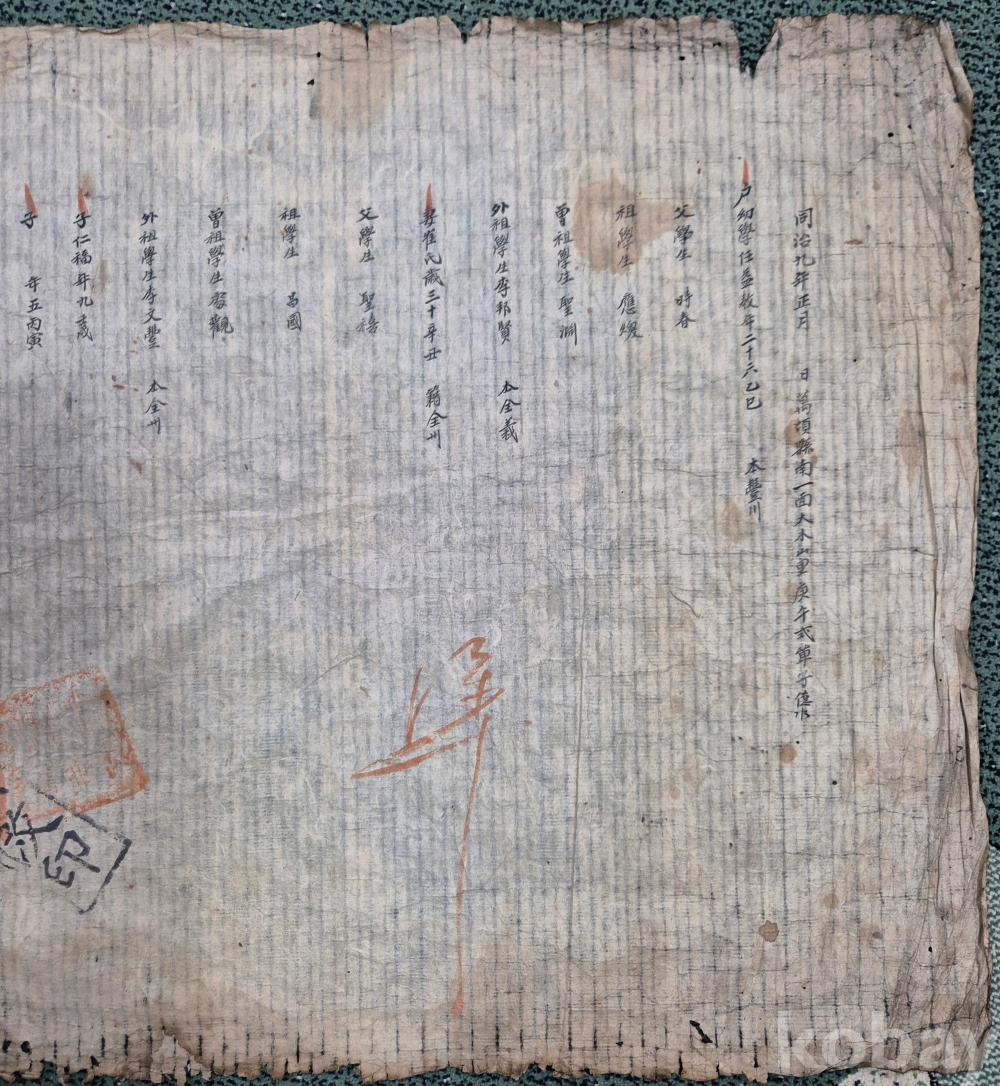 同治九年正月 日萬頃縣南一面大木山里庚午式單子
戶幼學任益 年二十六乙巳 本豐川
父學生 時春
祖學生 應
曾祖學生 聖淵
外祖學生李邦賢 本全義
妻崔氏歲三十辛丑 籍全州
父學生 聖
祖學生 昌國
曾祖學生 觀
外祖學生李文豐 本全州
子仁福年九歲
子 年五丙寅
準
印
kobay